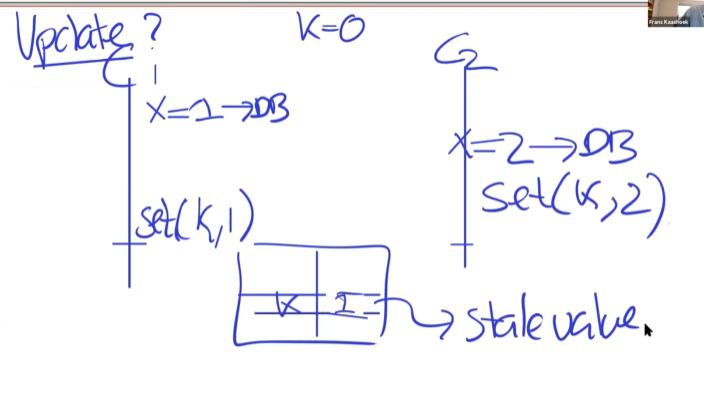 Update?
K=0
C1
x=1→DB
set(K,1)
C2
x=2→DB
set(K,2)
K 1
→ stale value
Frans Kaashoek